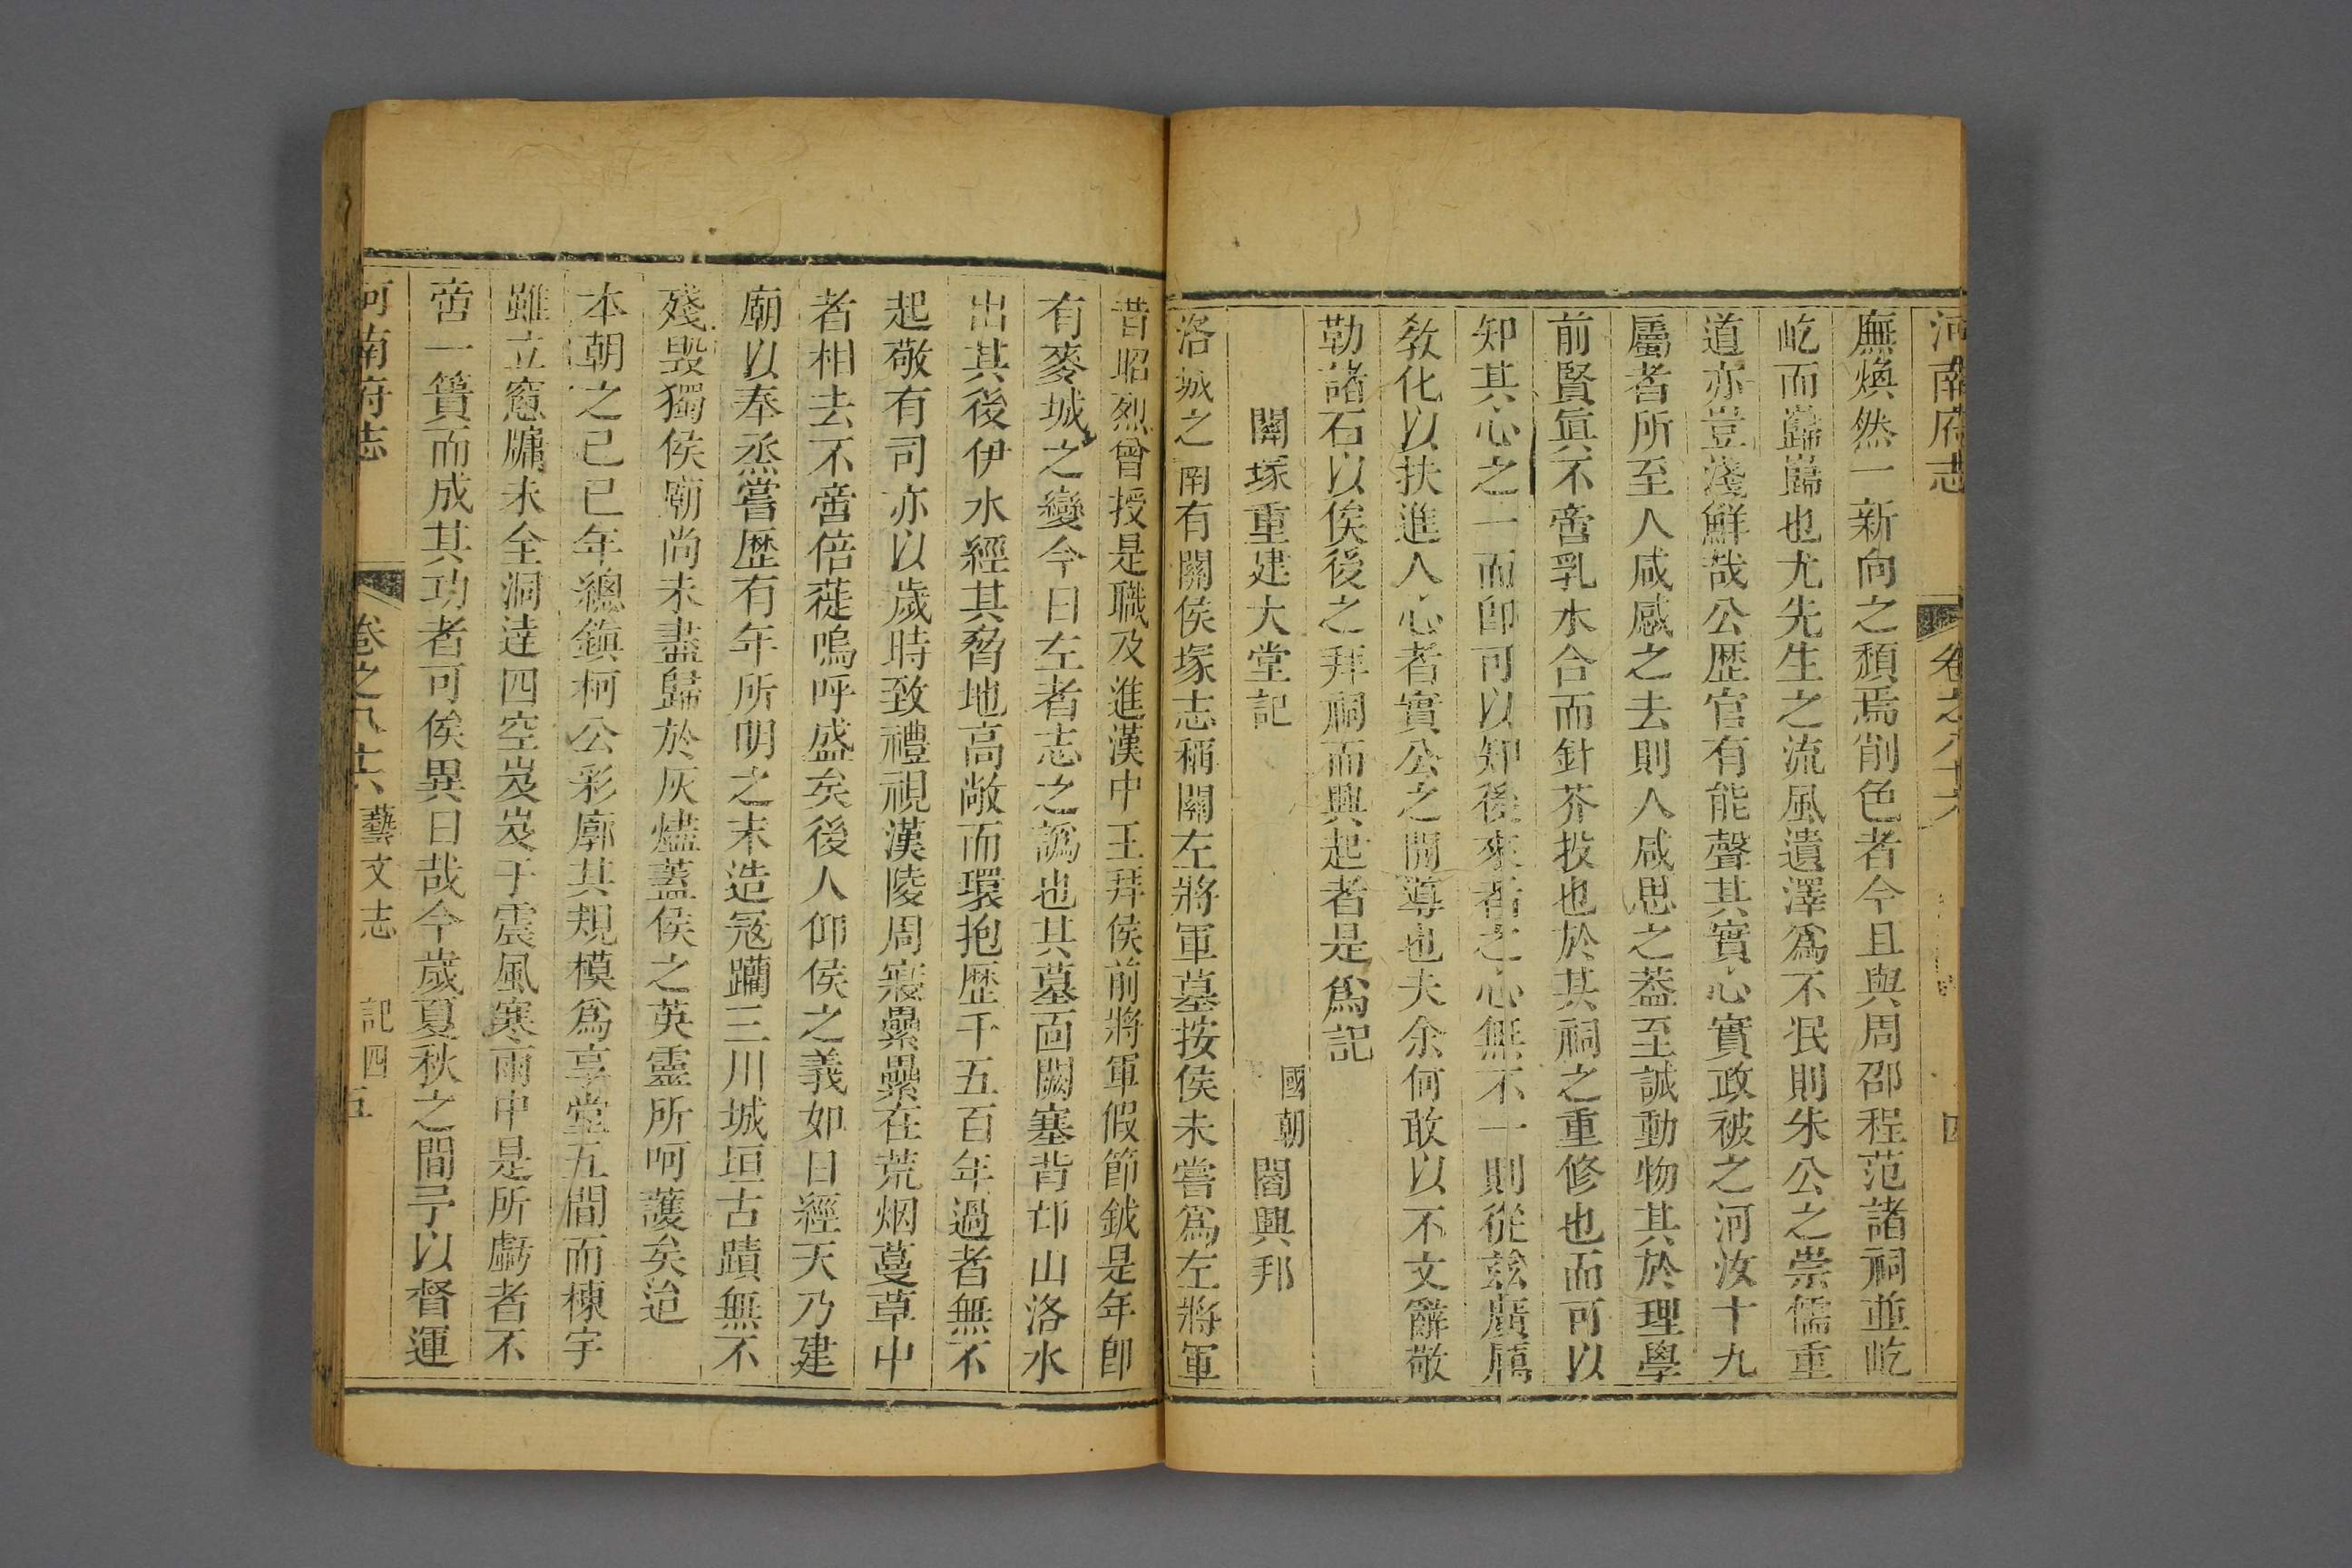 河南府志 卷之八十六 四
廡煥然一新向之頹焉削色者今且與周邵程范諸祠並屹
屹而巋巋也尤先生之流風遺澤爲不泯則朱公之崇儒重
道亦豈淺鮮哉公歴官有能聲其實心實政被之河汝十九
屬者所至人咸感之去則人咸思之葢至誠動物其於理學
前賢眞不啻乳水合而針芥投也於其祠之重修也而可以
知其心之一而卽可以知後來者之心無不一則從玆廣厲
敎化以扶進人心者實公之開導也夫余何敢以不文辭敬
勒諸石以俟後之拜祠而興起者是爲記
關塚重建大堂記 國朝 閻興邦
洛城之南有關侯塚志稱關左將軍墓按侯未嘗爲左將軍
昔昭烈曾授是職及進漢中王拜侯前將軍假節鉞是年卽
有麥城之變今日左者志之譌也其墓面闕塞背邙山洛水
出其後伊水經其脅地高敞而環抱歴千五百年過者無不
起敬有司亦以歲時致禮視漢陵周寢纍纍在荒烟蔓草中
者相去不啻倍蓰嗚呼盛矣後人仰侯之義如日經天乃建
廟以奉烝嘗歴有年所明之末造冦躪三川城垣古蹟無不
殘毁獨侯廟尚未盡歸於灰燼蓋侯之英靈所呵護矣迨
本朝之己巳年總鎮柯公彩廓其規模爲享堂五間而棟宇
雖立窻牖未全洞逹四空岌岌于震風寒雨中是所虧者不
啻一簣而成其功者可俟異日哉今歲夏秋之間予以督運
河南府志 卷之八十六 藝文志 記四 五